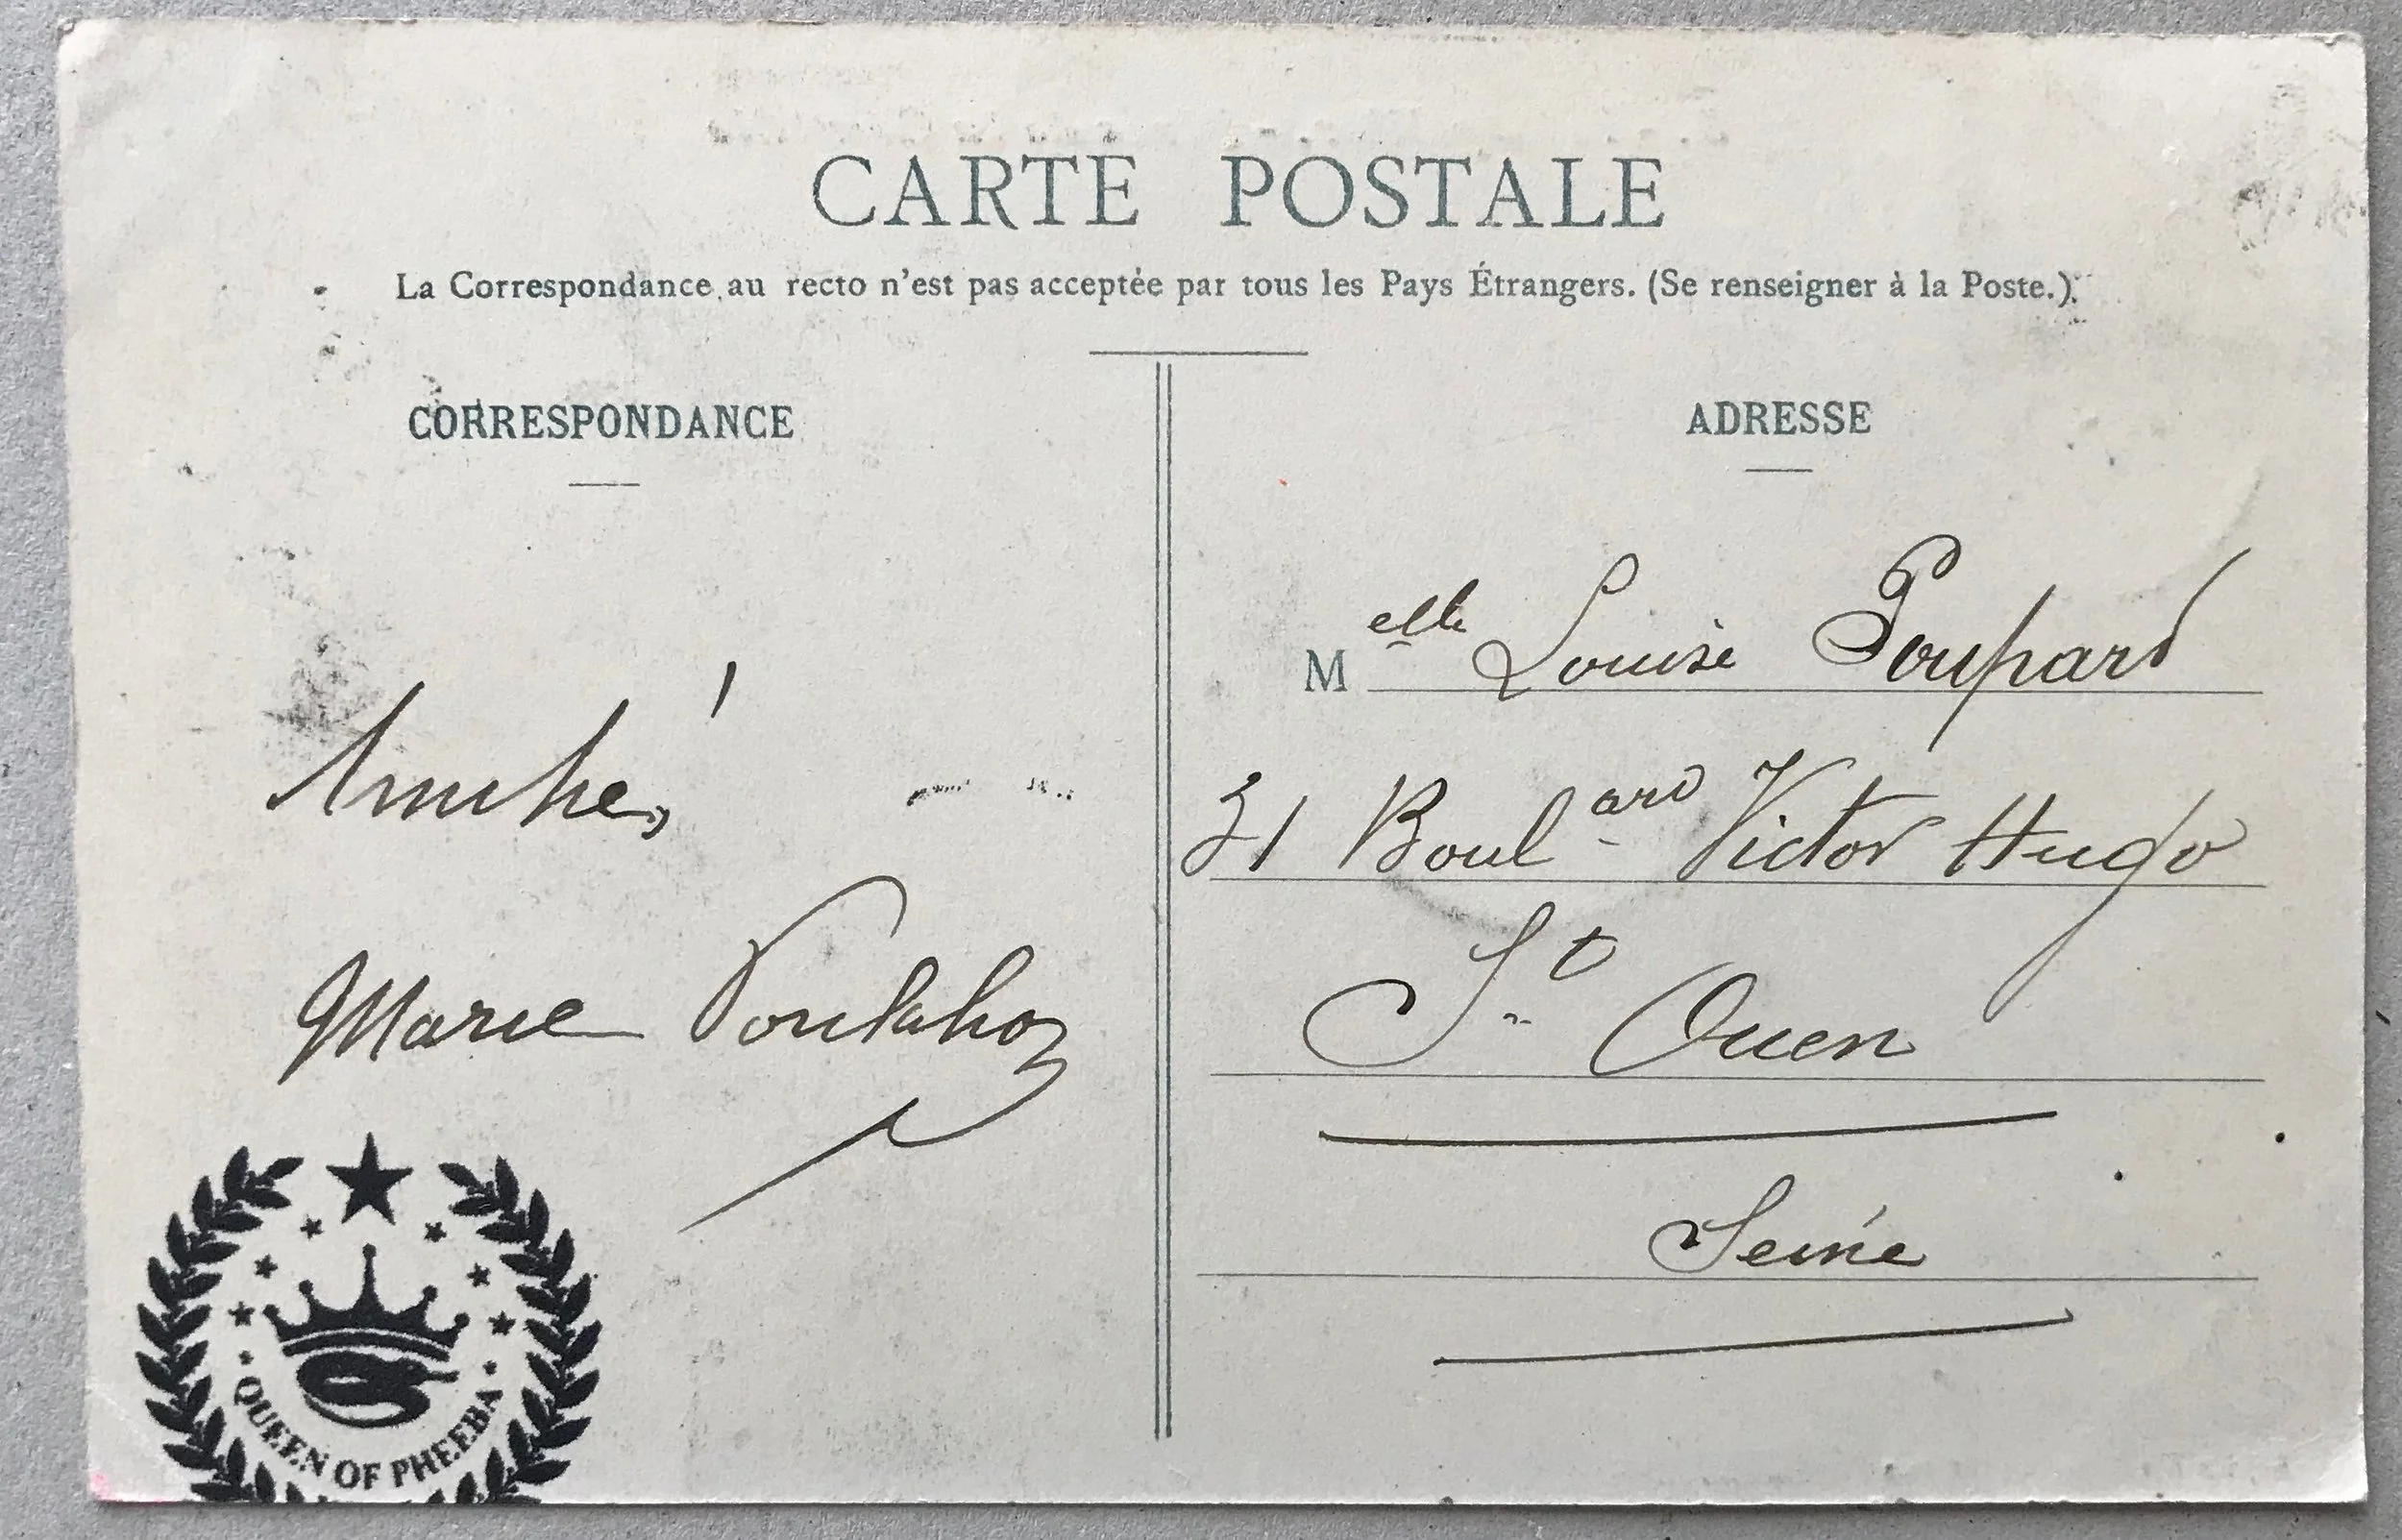 CARTE POSTALE
La Correspondance au recto n'est pas acceptée par tous les Pays Étrangers. (Se renseigner à la Poste.)
CORRESPONDANCE
Marie
QUEEN OF PHEEBA
ADRESSE
Melle Louise Poupard
31 Boulard Victor Hugo
St Ouen
Seine